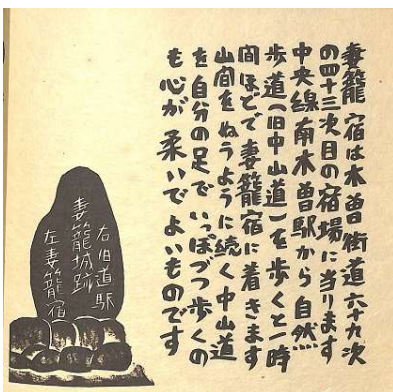 妻籠宿は木曽街道六十九次
の四十三次目の宿場に当ります
中央線南木曽駅から自然
歩道(旧中山道)を歩くと一時
間ほどで妻籠宿に着きます
山間をぬうように続く中山道
を自分の足でいっぽづつ歩くの
も心が柔いでよいものです
右旧道駅
妻籠城跡
左妻籠宿